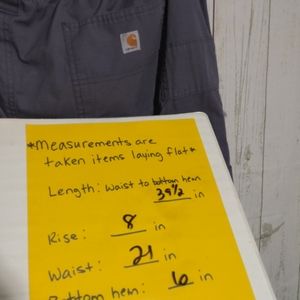 carhartt
*Measurements are
taken items laying flat*
Length: Waist to bottom hem
39 1/2 in
Rise: 8 in
Waist: 21 in
Bottom hem: 6 in